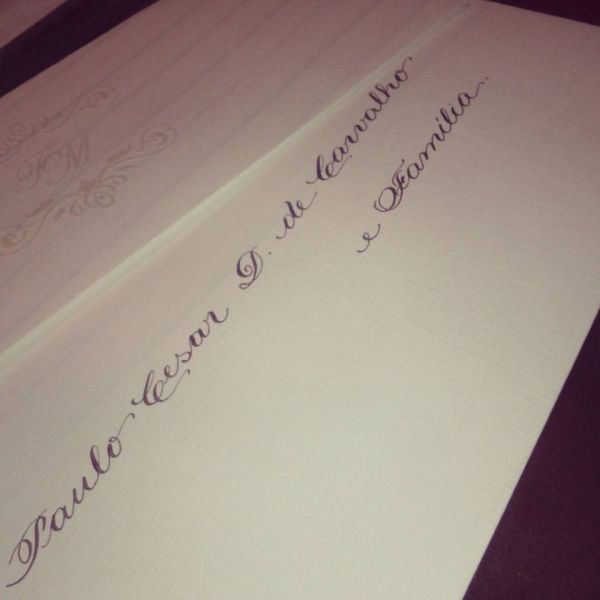 FM
Paulo Cesar D. de Carvalho
e Família.